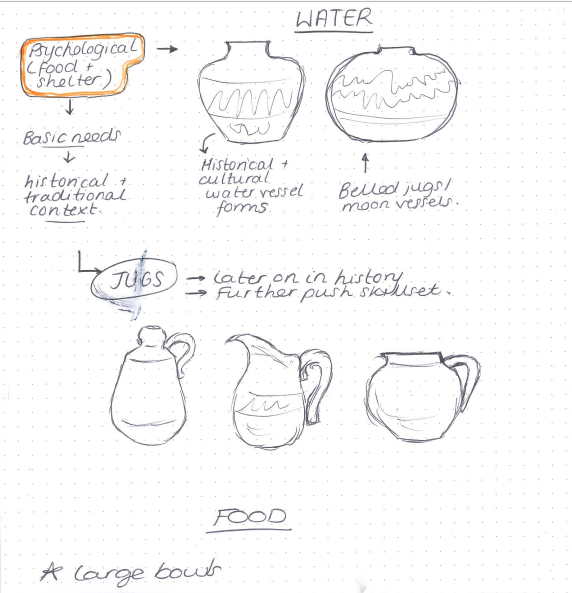 WATER
Psychological
(Food +
shelter)
Basic needs
historical +
traditional
context.
Historical +
cultural
water vessel
forms
Bellied jugs/
moon vessels.
JUGS
Later on in history
Further push skillset.
FOOD
* Large bowls